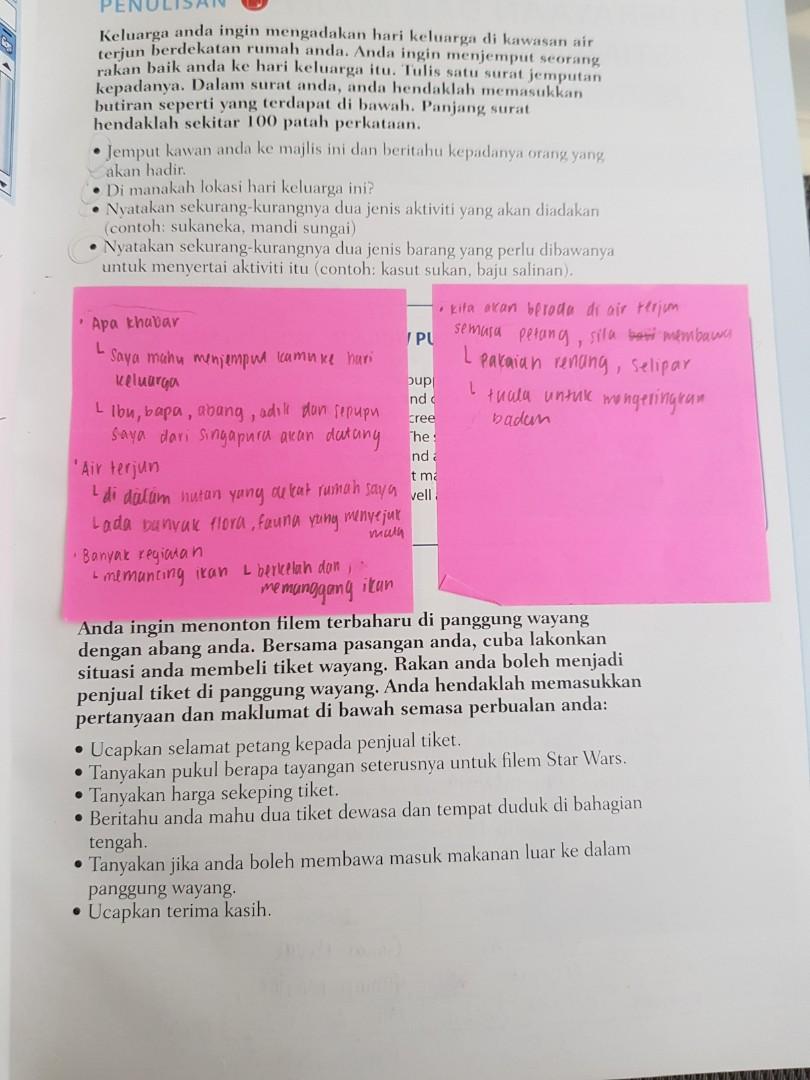 PENULISAN
Keluarga anda ingin mengadakan hari keluarga di kawasan air
terjun berdekatan rumah anda. Anda ingin menjemput seorang
rakan baik anda ke hari keluarga itu. Tulis satu surat jemputan
kepadanya. Dalam surat anda, anda hendaklah memasukkan
butiran seperti yang terdapat di bawah. Panjang surat
hendaklah sekitar 100 patah perkataan.
• Jemput kawan anda ke majlis ini dan beritahu kepadanya orang yang
akan hadir.
• Di manakah lokasi hari keluarga ini?
• Nyatakan sekurang-kurangnya dua jenis aktiviti yang akan diadakan
(contoh: sukaneka, mandi sungai)
• Nyatakan sekurang-kurangnya dua jenis barang yang perlu dibawanya
untuk menyertai aktiviti itu (contoh: kasut sukan, baju salinan).
• Apa khabar
Saya mahu menjemput kamu ke hari
keluarga
Ibu, bapa, abang, adik dan sepupu
saya dari Singapura akan datang
• Air terjun
di dalam hutan yang dekat rumah saya
ada banyak flora, fauna yang menyejuk
mata
• Banyak kegiatan
memancing ikan berkelah dan
memanggang ikan
• kita akan berada di air terjun
semasa petang, sila membawa
pakaian renang, selipar
tuala untuk mengeringkan
badan
Anda ingin menonton filem terbaharu di panggung wayang
dengan abang anda. Bersama pasangan anda, cuba lakonkan
situasi anda membeli tiket wayang. Rakan anda boleh menjadi
penjual tiket di panggung wayang. Anda hendaklah memasukkan
pertanyaan dan maklumat di bawah semasa perbualan anda:
• Ucapkan selamat petang kepada penjual tiket.
• Tanyakan pukul berapa tayangan seterusnya untuk filem Star Wars.
• Tanyakan harga sekeping tiket.
• Beritahu anda mahu dua tiket dewasa dan tempat duduk di bahagian
tengah.
• Tanyakan jika anda boleh membawa masuk makanan luar ke dalam
panggung wayang.
• Ucapkan terima kasih.